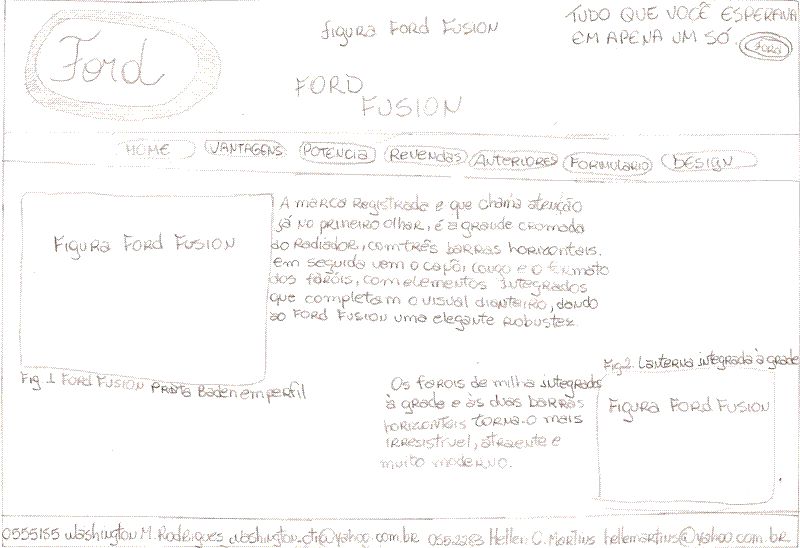 Ford
figura FORD FUSION
TUDO QUE VOCÊ ESPERAVA
EM APENA UM SÓ.
Ford
FORD
FUSION
HOME VANTAGENS POTENCIA REVENDAS ANTERIORES FORMULARIO DESIGN
Figura Ford Fusion
A marca Registrada e que chama atenção
já no primeiro olhar, é a grande cromada
ao Radiador, com três barras horizontais.
em seguida vem o capô, longo e o formato
dos faróis, com elementos integrados
que completam o visual dianteiro, dando
ao FORD FUSION uma elegante robustez.
Fig 1 FORD FUSION PRATA Baden em perfil
Fig 2. Lanterna integrada à grade
Os faróis de milha integrados
à grade e às duas barras
horizontais torna-o mais
irresistivel, atraente e
muito moderno.
Figura Ford Fusion
0555155 Washington M. Rodrigues washington_oti@yahoo.com.br 0552283 Hellen C. Martins hellemartins@yahoo.com.br